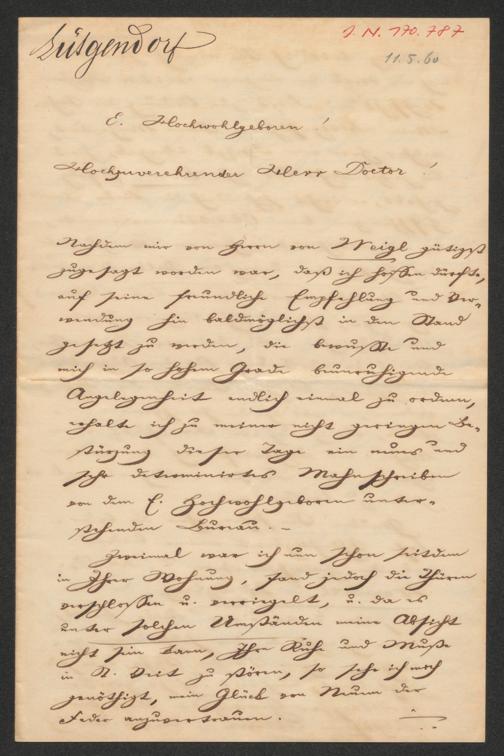 Lütgendorf
I. N. 170.787
11.5.60
E. Hochwohlgeboren!
Hochzuverehrender Herr Doctor!
Nachdem mir von Herrn von Weigl gütigst
zugesagt worden war, daß ich hoffen dürfte,
auf seine freundliche Empfehlung und Ver-
wendung hin baldmöglichst in den Stand
gesetzt zu werden, die bewußte und
mich in so hohem Grade beunruhigende
Angelegenheit endlich einmal zu ordnen,
erhalte ich zu meiner nicht geringen Be-
stürzung dieser Tage ein neues und
sehr determinirtes Mahnschreiben
von dem E. Hochwohlgeboren unter-
stehenden Bureau. –
Zweimal war ich nun schon seitdem
in Ihrer Wohnung, fand jedoch die Thüren
verschlossen u. verriegelt, u. da es
unter solchen Umständen meine Absicht
nicht sein kann, Ihre Ruhe und Muße
in St. Veit zu stören, so sehe ich mich
genöthigt, mein Glück von Neuem der
Feder anzuvertrauen.